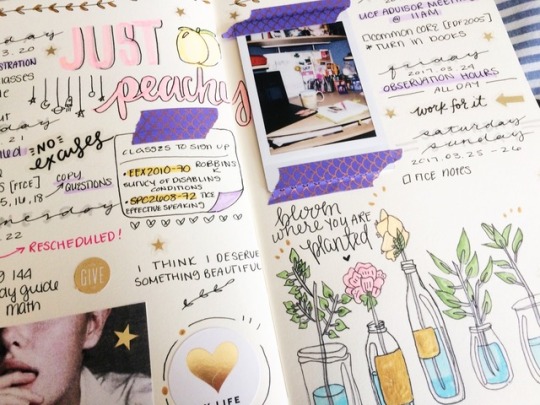 3.20
JUST
peachy
21
-NO-
excuses
COPY
QUESTIONS
[RICE]
5, 16, 18
22
→ RESCHEDULED!
144
guide
math
GIVE
CLASSES TO SIGN UP
• EEX2010-70 ROBBINS
SURVEY OF DISABLING
CONDITIONS
• SPC2608-72 TICE
EFFECTIVE SPEAKING
I THINK I DESERVE
SOMETHING BEAUTIFUL
LIFE
UCF ADVISOR MEETING
@ 11AM
common core [EDF2005]
* turn in books
friday
2017.03.24
OBSERVATION HOURS
ALL DAY
work for it
saturday
sunday
2017.03.25-26
RICE NOTES
bloom
where you are
planted